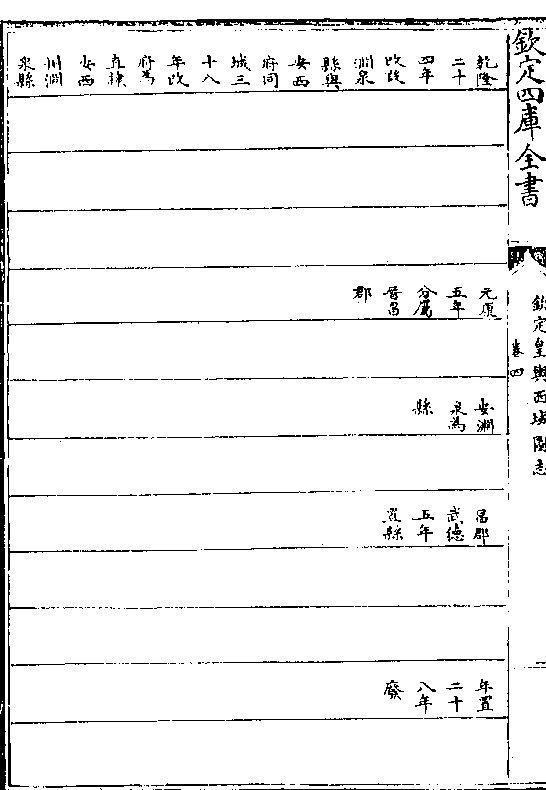 欽定四庫全書
欽定皇輿西域圖志
卷四
乾隆
二十
四年
改設
淵泉
縣與
安西
府同
城三
十八
年改
府為
直隸
安西
州淵
泉縣
元康
五年
分屬
晉昌
郡
安淵
泉為
縣
昌郡
武德
五年
置縣
年置
二十
八年
廢